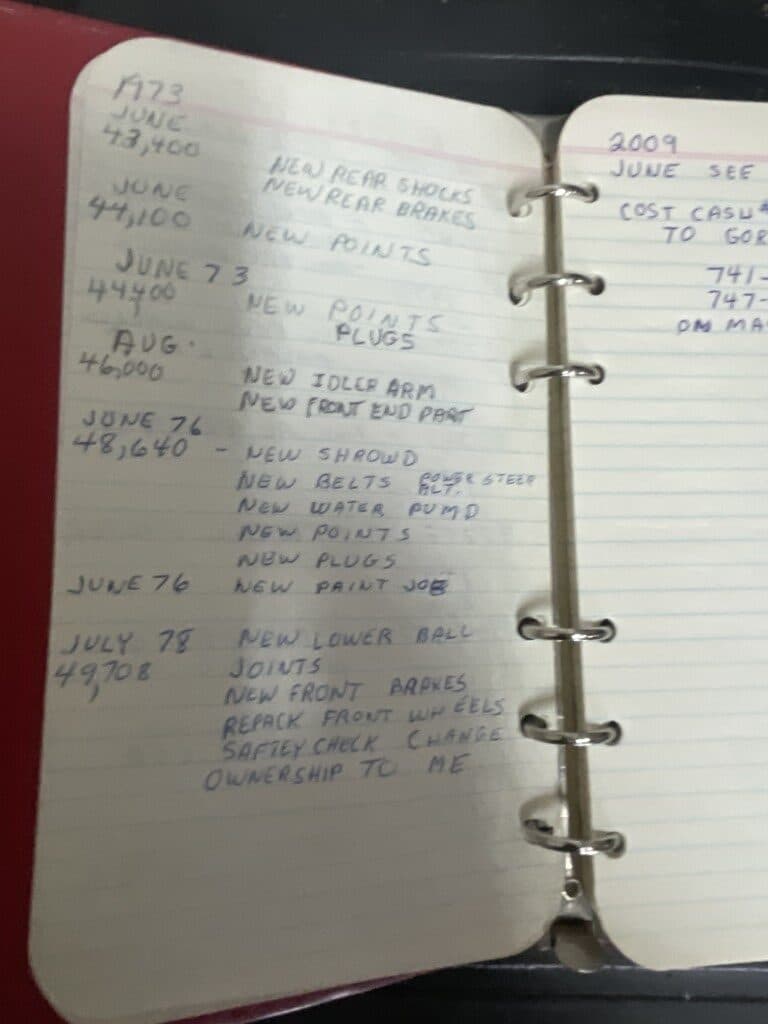 1973
JUNE
43,400
NEW REAR SHOCKS
NEW REAR BRAKES
JUNE
44,100
NEW POINTS
JUNE 73
44,400
NEW POINTS
PLUGS
AUG.
46,000
NEW IDLER ARM
NEW FRONT END PART
JUNE 76
48,640 - NEW SHROWD
NEW BELTS POWER STEER
ALT.
NEW WATER PUMP
NEW POINTS
NEW PLUGS
JUNE 76 NEW PAINT JOB
JULY 78 NEW LOWER BALL
49,708 JOINTS
NEW FRONT BRAKES
REPACK FRONT WHEELS
SAFTEY CHECK CHANGE
OWNERSHIP TO ME
2009
JUNE SEE
COST CASH $
TO GOR
741-
747-
ON MA